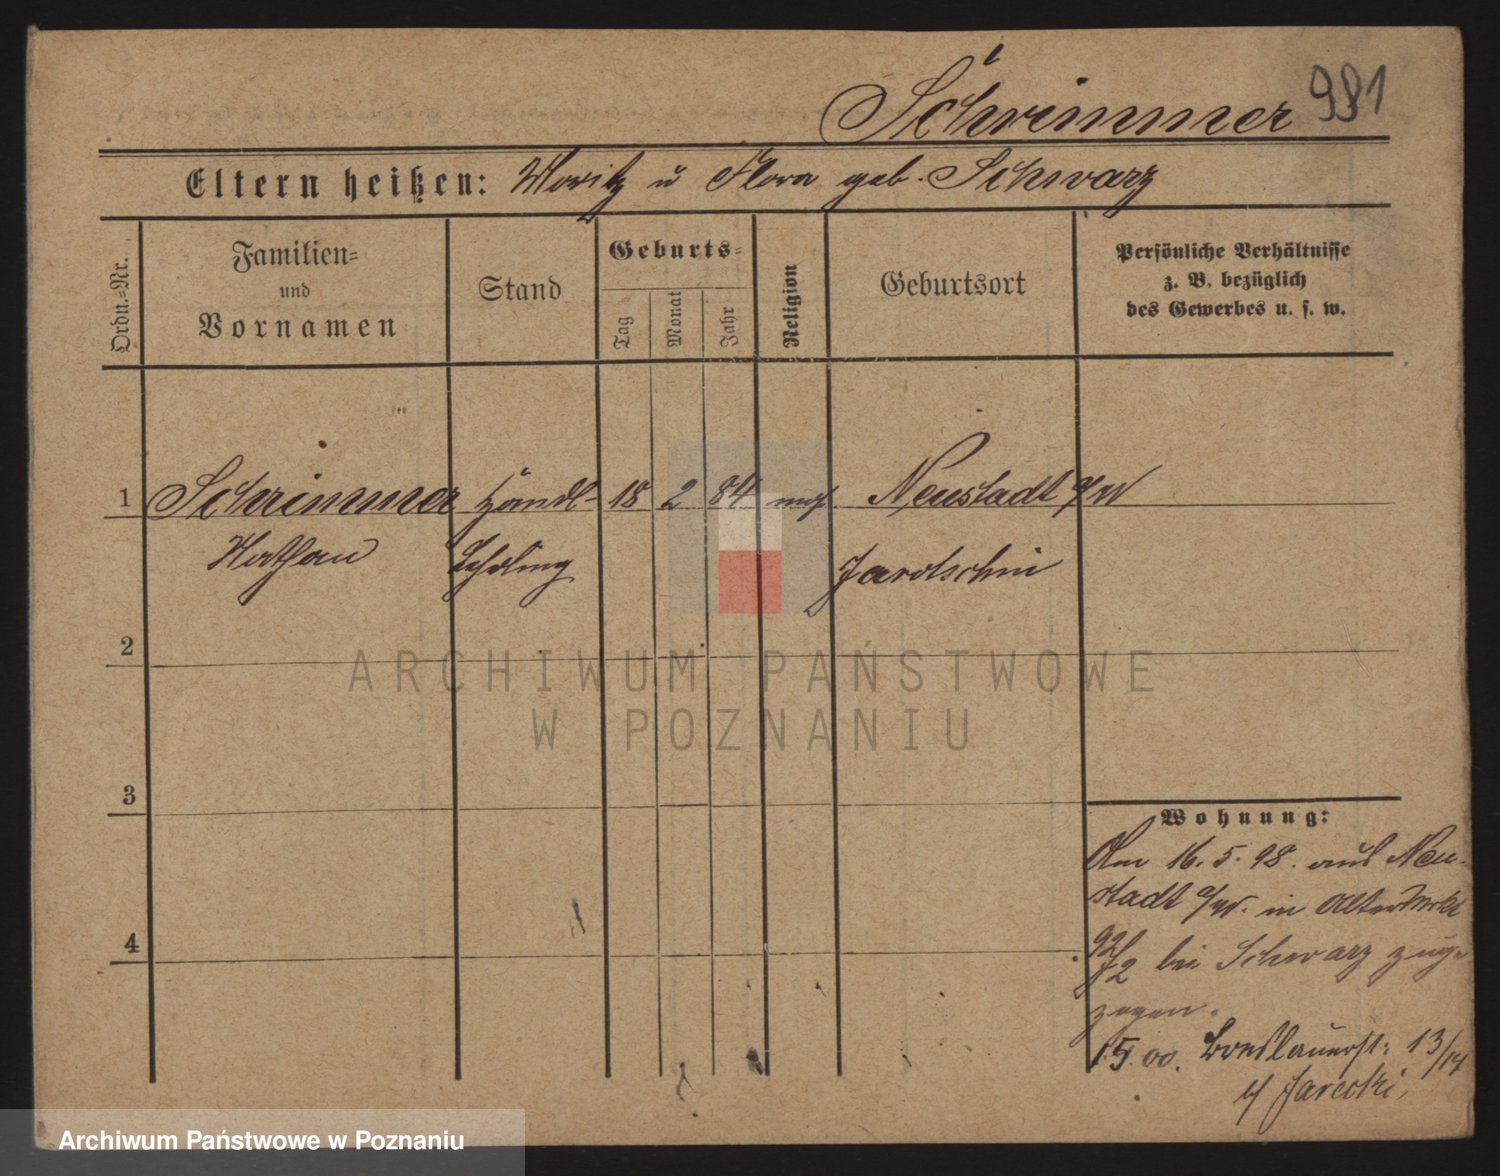 Schrimmer 981
Eltern heißen: Moritz u Flora geb. Schwarz
Ordn.-Nr.
Familien-
und
Vornamen
Stand
Geburts-
Tag
Monat
Jahr
Religion
Geburtsort
Persönliche Verhältnisse
z. B. bezüglich
des Gewerbes u. s. w.
1 Schrimmer Handl- 18 2 84 mos. Neustadt a/W
Nathan Lehrling Jarotschin
2
ARCHIWUM PAŃSTWOWE
W POZNANIU
3
4
Wohnung:
Am 16.5.98. aus Neu-
stadt a/W. in Alter Mrkt
92/72 bei Schwarz zuge-
zogen.
1.5.00. Breslauerst: 13/14
b/ Jarecki,
Archiwum Państwowe w Poznaniu